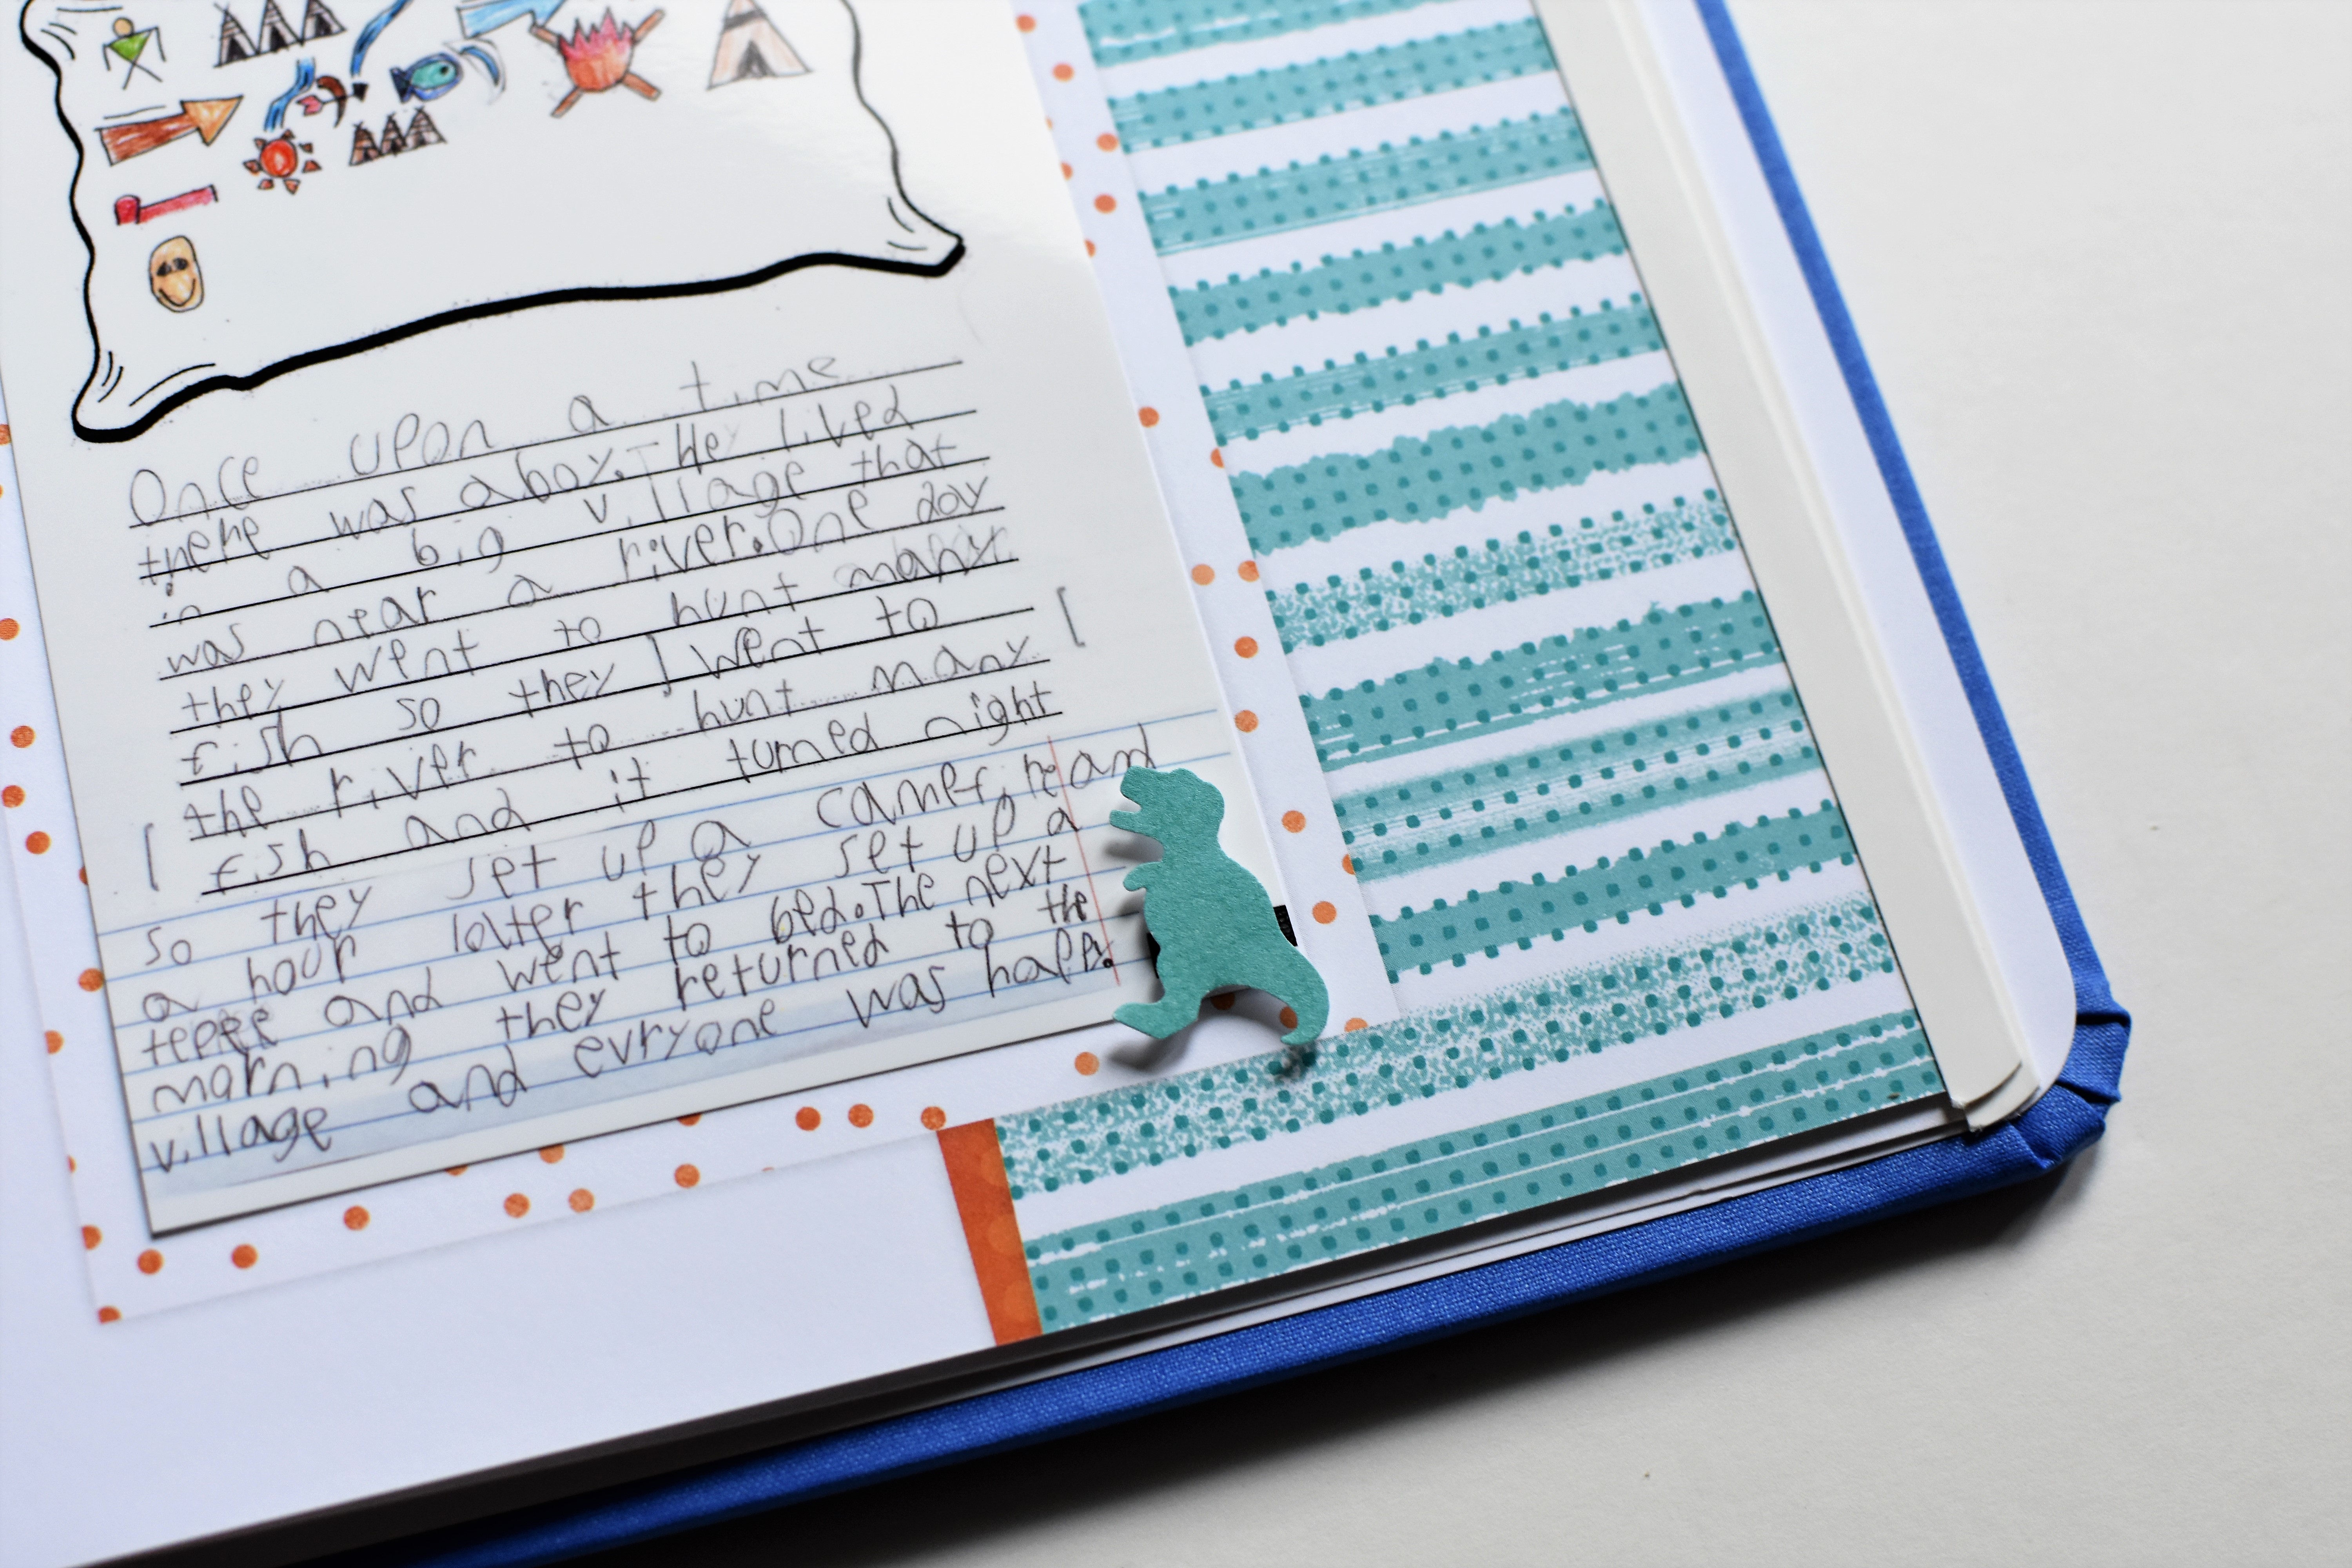 Once upon a time
there was a boy. He lived
in a big village that
was near a river. One day
they went to hunt many
fish so they went to
the river to hunt many
fish and it turned night
so they set up a camefire and
a hour later they set up a
teepee and went to bed. The next
morning they returned to the
village and evryone was happy.